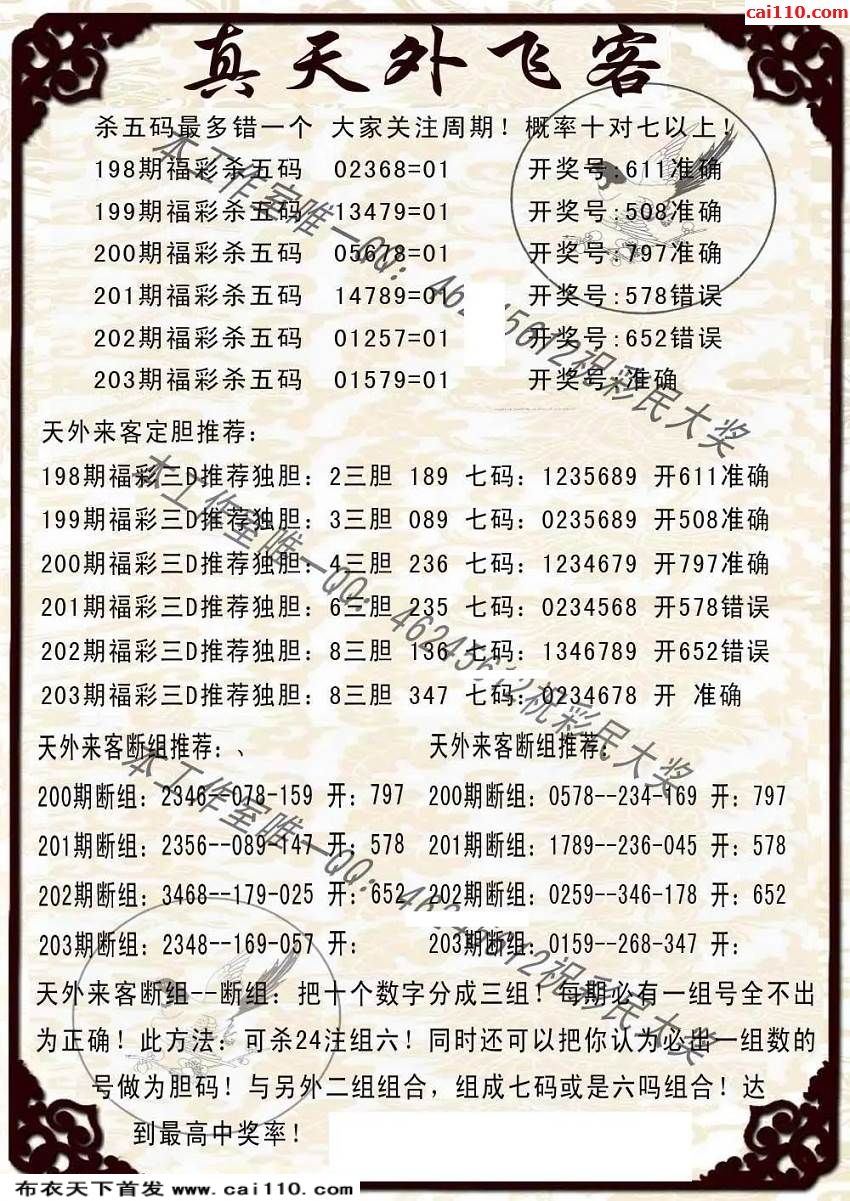 cai110.com
真天外飞客
杀五码最多错一个 大家关注周期！概率十对七以上！
198期福彩杀五码 02368=01 开奖号:611准确
199期福彩杀五码 13479=01 开奖号:508准确
200期福彩杀五码 05678=01 开奖号:797准确
201期福彩杀五码 14789=01 开奖号:578错误
202期福彩杀五码 01257=01 开奖号:652错误
203期福彩杀五码 01579=01 开奖号:准确
天外来客定胆推荐：
198期福彩三D推荐独胆：2三胆 189 七码：1235689 开611准确
199期福彩三D推荐独胆：3三胆 089 七码：0235689 开508准确
200期福彩三D推荐独胆：4三胆 236 七码：1234679 开797准确
201期福彩三D推荐独胆：6三胆 235 七码：0234568 开578错误
202期福彩三D推荐独胆：8三胆 136 七码：1346789 开652错误
203期福彩三D推荐独胆：8三胆 347 七码：0234678 开 准确
天外来客断组推荐：、 天外来客断组推荐：
200期断组：2346--078-159 开：797 200期断组：0578--234-169 开：797
201期断组：2356--089-147 开：578 201期断组：1789--236-045 开：578
202期断组：3468--179-025 开：652 202期断组：0259--346-178 开：652
203期断组：2348--169-057 开： 203期断组：0159--268-347 开：
天外来客断组--断组：把十个数字分成三组！每期必有一组号全不出
为正确！此方法：可杀24注组六！同时还可以把你认为必出一组数的
号做为胆码！与另外二组组合，组成七码或是六吗组合！达
到最高中奖率！
本工作室唯一QQ：46245612祝彩民大奖
本工作室唯一QQ：46245612祝彩民大奖
本工作室唯一QQ：46245612祝彩民大奖
布衣天下首发 www.cai110.com